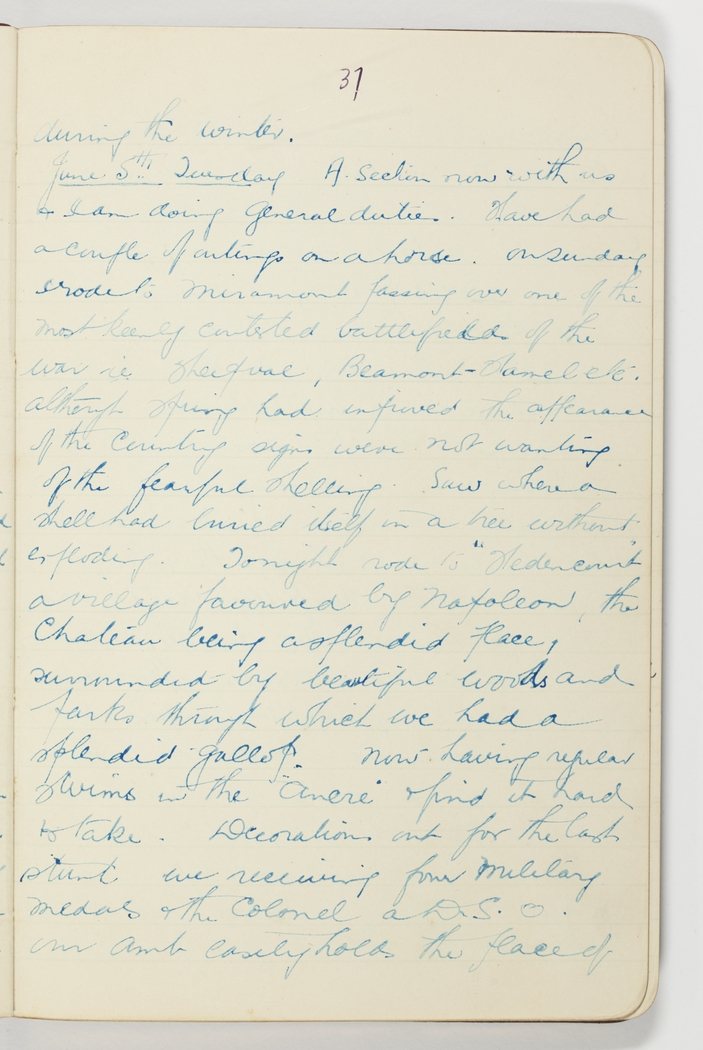 37
during the winter.
June 5th Tuesday A. Section now with us
& I am doing General duties. Have had
a couple of outings on a horse. On Sunday
I rode to Miramont passing over one of the
most keenly contested battlefields of the
war ie Theipval, Beamont-Hamel etc.
although spring had improved the appearance
of the Country signs were not wanting
of the fearful shelling. Saw where a
shell had buried itself in a tree without
exploding. Tonight rode to "Hedencourt"
a village favoured by Napoleon, the
Chateau being a splendid place,
surrounded by beautiful woods and
parks through which we had a
splendid gallop. Now having regular
swims in the "Ancre" & find it hard
to take. Decorations out for the last
stunt we receiving four Military
medals & the Colonel a D.S.O.
our Amb easily holds the place of